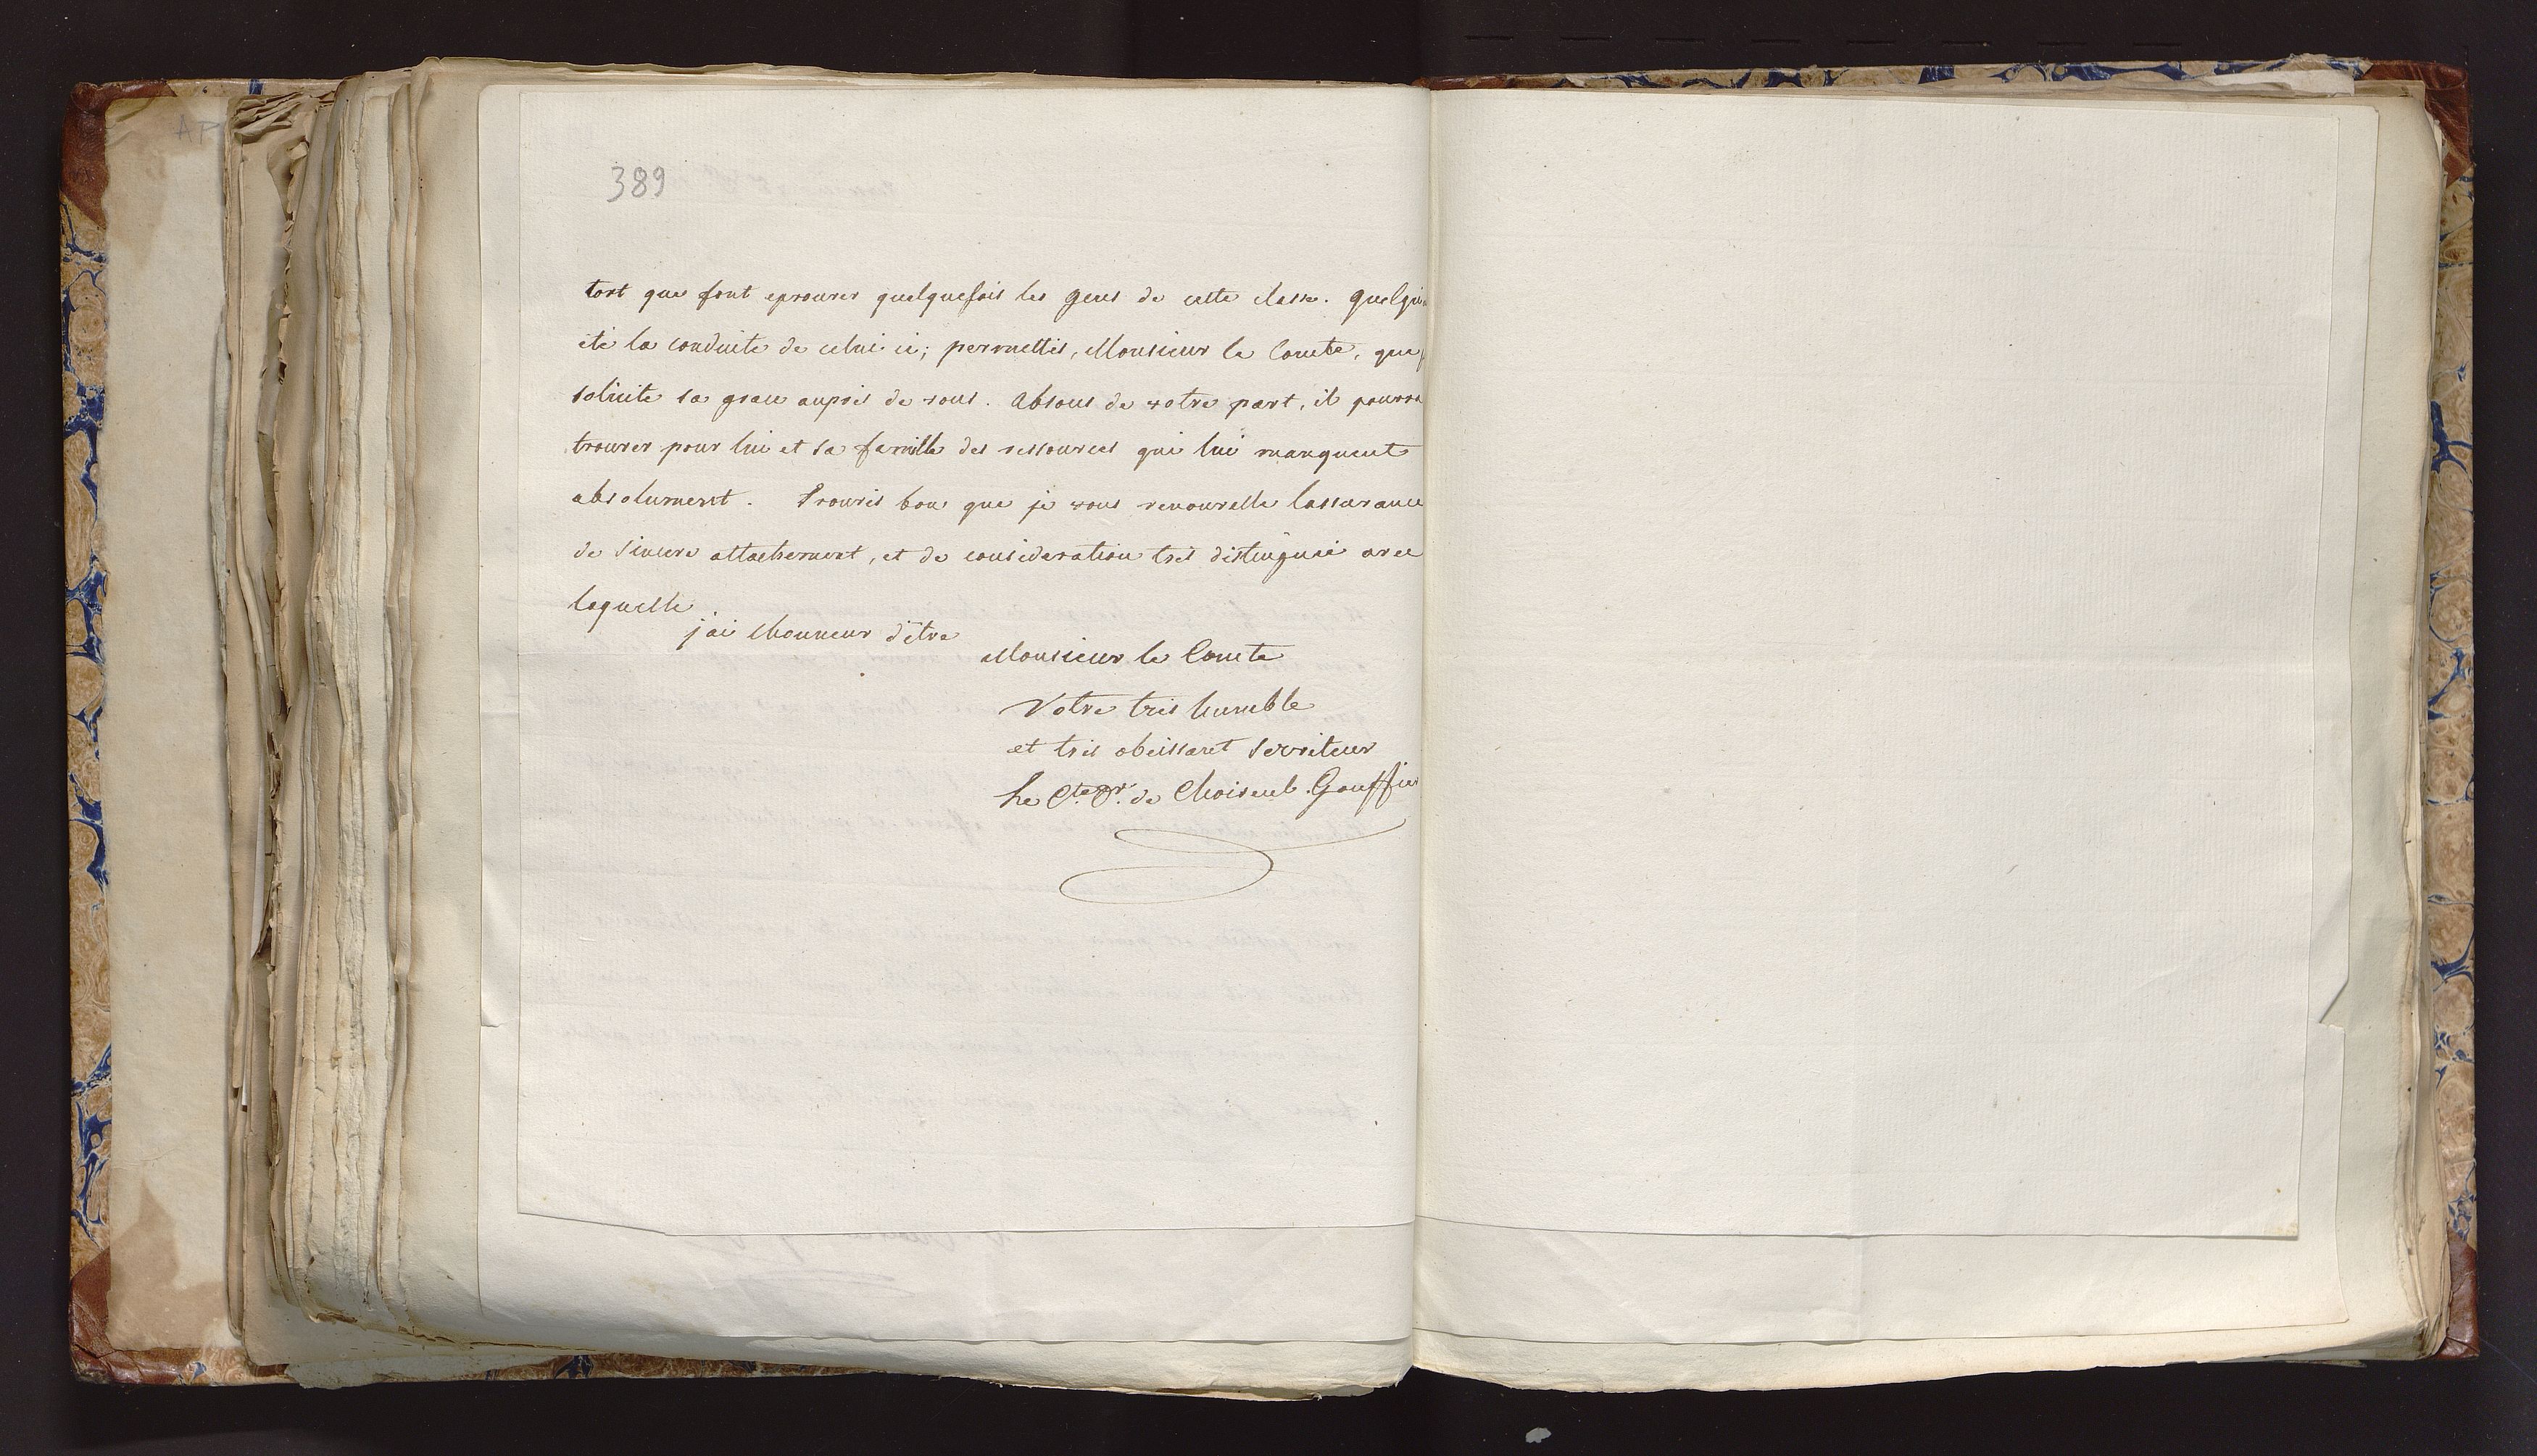 389
tort que font eprouver quelquefois les gens de cette classe. quelqu
été la conduite de celui ci; permettés, Monsieur le Comte, que
solicite sa grace auprès de vous. Absous de votre part, il pourra
trouver pour lui et sa famille des ressources qui lui manquent
absolument. Trouvés bon que je vous renouvelle lassurance
de sincere attachement, et de consideration très distinguée avec
laquelle
jai lhonneur d'être
Monsieur le Comte
Votre très humble
et très obeissant serviteur
Le Cte. de Choiseul. Gouffier
AP